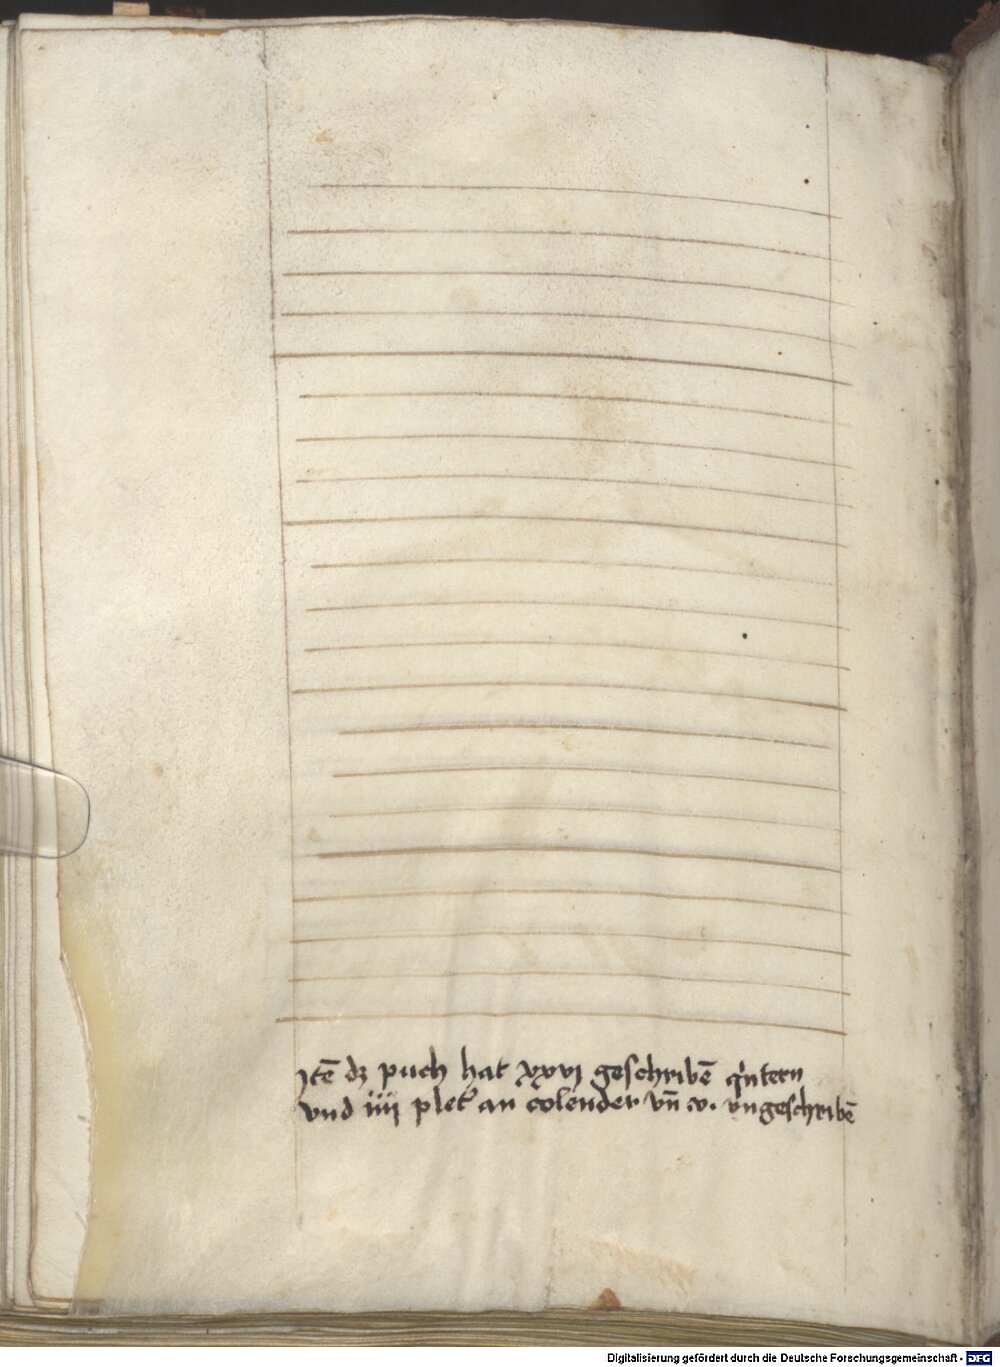 Jtē dz puch hat xxvj geschribē q̓ntern
vnd iiij plet̓ an colender vn̄ xv. vngeschribē
Digitalisierung gefördert durch die Deutsche Forschungsgemeinschaft - DFG